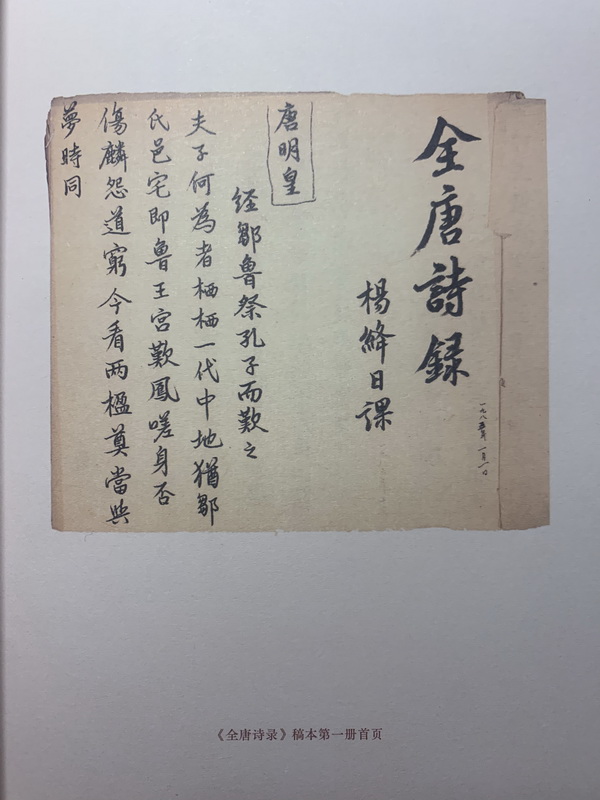 全唐詩録
一九八五年一月一日
楊絳日課
唐明皇
经鄒魯祭孔子而歎之
夫子何為者栖栖一代中地猶鄒
氏邑宅即魯王宫歎鳳嗟身否
傷麟怨道窮今看两楹奠當與
夢時同
《全唐诗录》稿本第一册首页